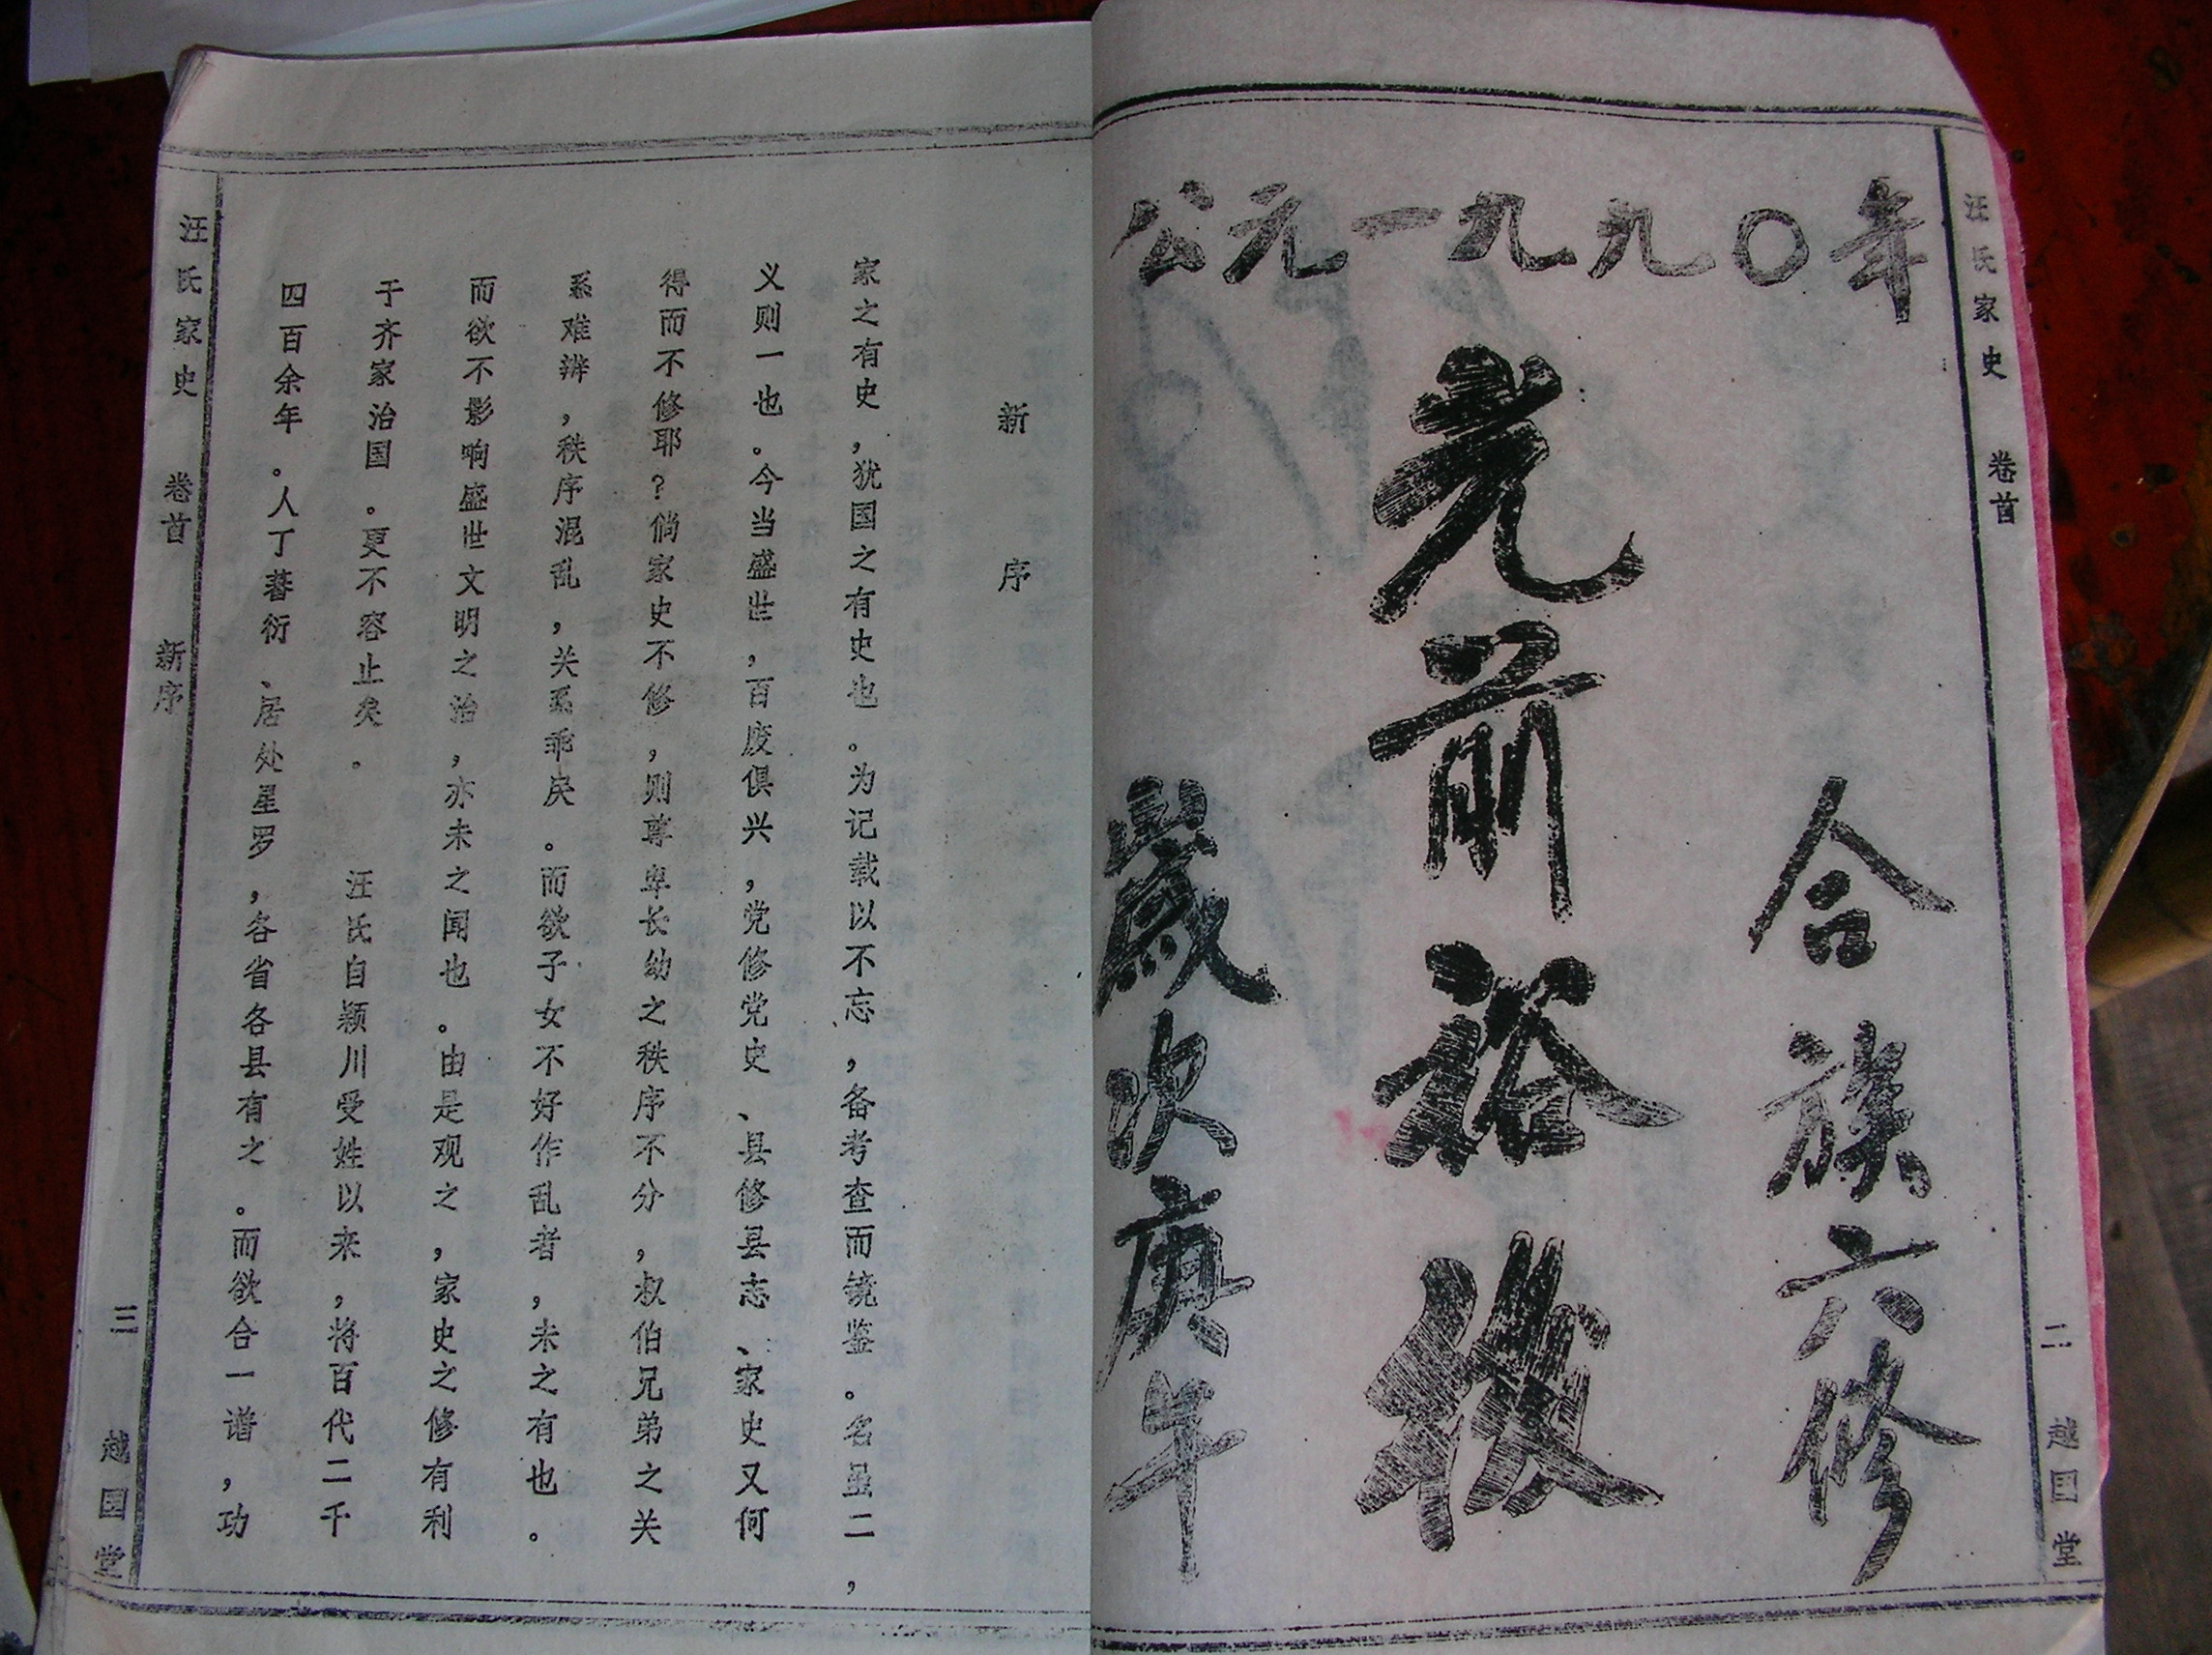 汪氏家史 卷首 二 越国堂
公元一九九〇年
合族六修
光前裕後
歲次庚午
新序
家之有史，犹国之有史也。为记载以不忘，备考查而镜鉴。名虽二，
义则一也。今当盛世，百废俱兴，党修党史、县修县志、家史又何
得而不修耶？倘家史不修，则尊卑长幼之秩序不分，叔伯兄弟之关
系难辨，秩序混乱，关系乖戾。而欲子女不好作乱者，未之有也。
而欲不影响盛世文明之治，亦未之闻也。由是观之，家史之修有利
于齐家治国。更不容止矣。 汪氏自颍川受姓以来，将百代二千
四百余年。人丁蕃衍、居处星罗，各省各县有之。而欲合一谱，功
汪氏家史 卷首 新序 三 越国堂